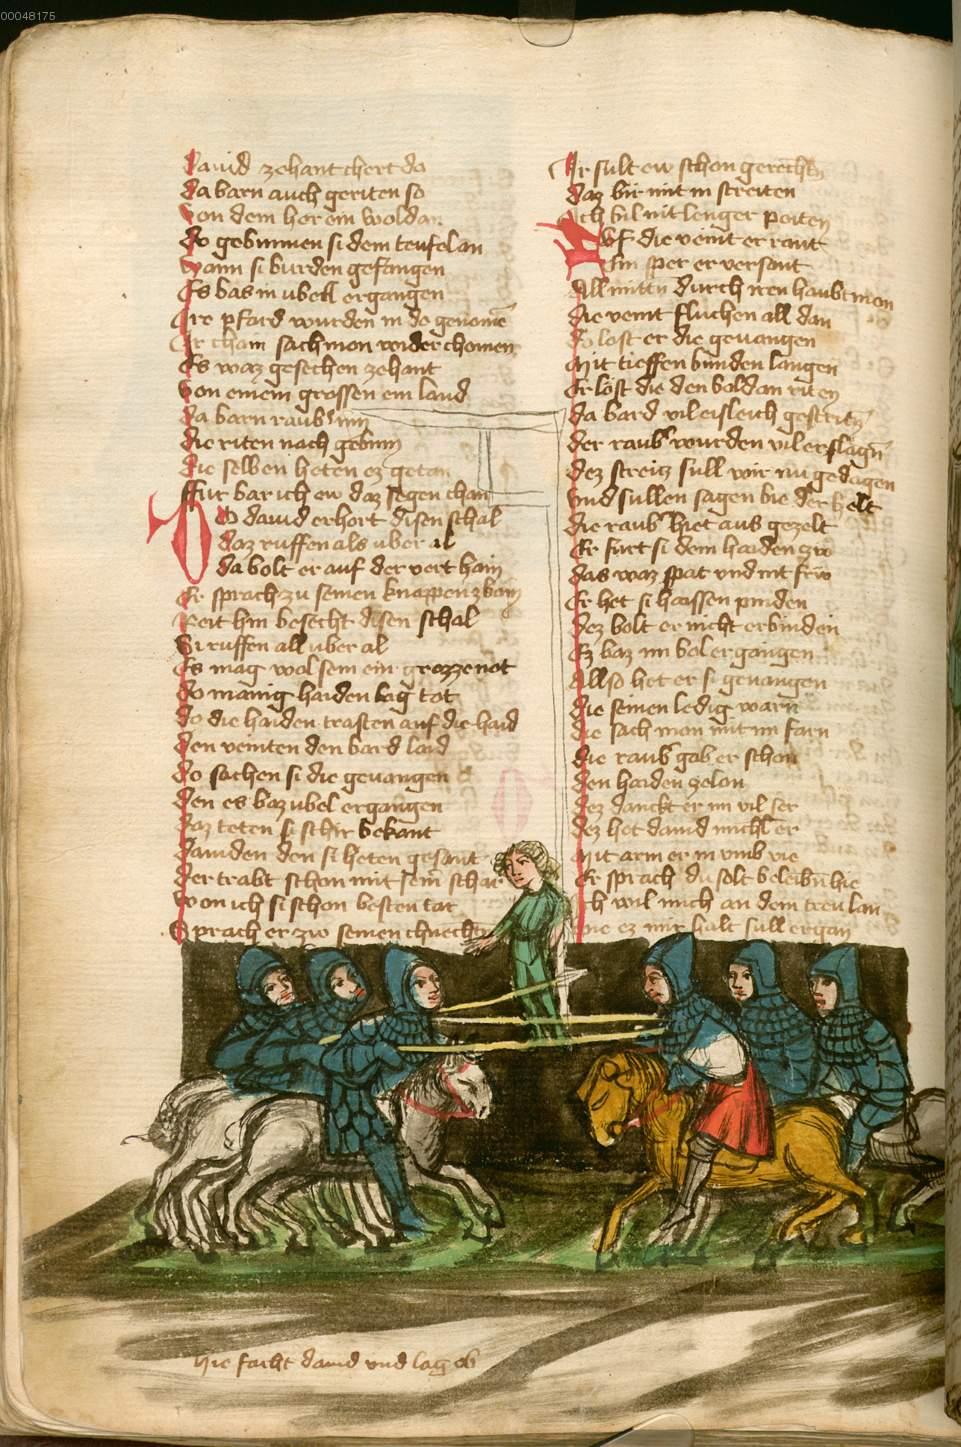 00048175
Dauid zehant chert do
da barn auch geriten so
Von dem her ein woldan
do gebunnen si dem teufel an
Wann si burden gefangen
Es bas in ubell ergangen
Ire pfard wurden in do genome
Er cham sach mon wider chomen
Es waz gesechen zehant
Von einem grossen em land
da barn raub
die riten nach gebinn
die selben heten ez getan
ffur bar ich ew daz segen chan
Do dauid erhort disen schal
daz ruffen als uber al
da bolt er auf der vert hain
Er sprach zu seinen knappen zbain
Reit hin besecht disen schal
Si ruffen all uber al
Es mag wol sein ein grozze not
do manig haiden lag tot
do die haiden trasten auf die haid
den veinten den bard laid
do sachen si die geuangen
den es baz ubel ergangen
daz teten si schir bekant
dauiden den si heten gesant
der trabt schon mit sein schar
won ich si schon besten tar
Sprach er zw seinen chnechten
Ir sult ew schon gerechen
daz bir mit in streiten
Ich bil nit lenger peiten
Auf die veint er rant
Sin sper er versant
All mittn durch iren haubtmon
die veint fluchen all dan
do lost er die geuangen
Mit tieffen bunden langen
Er lost die den boldan riten
da bard vil eisleich gestriten
der raub wurden vil erslagn
dez streitz sull wir nu gedagen
Vnd sullen sagen bie der helt
die raub hiet aus gezelt
Er furt si dem haiden zw
das waz spat vnd nit frw
Er het si haissen pinden
dez bolt er nicht erbinden
Ez baz im bol ergangen
Allso het er si geuangen
die seinen ledig warn
die sach mon mit im farn
die raub gab er schon
den haiden zelon
dez danckt er im vil ser
dez het dauid michl er
Mit arm er in vmb vie
Er sprach du solt beleibn hie
Ich wil mich an dein treu lan
bie ez mir halt sull ergan
Hie facht dauid vnd lag ob